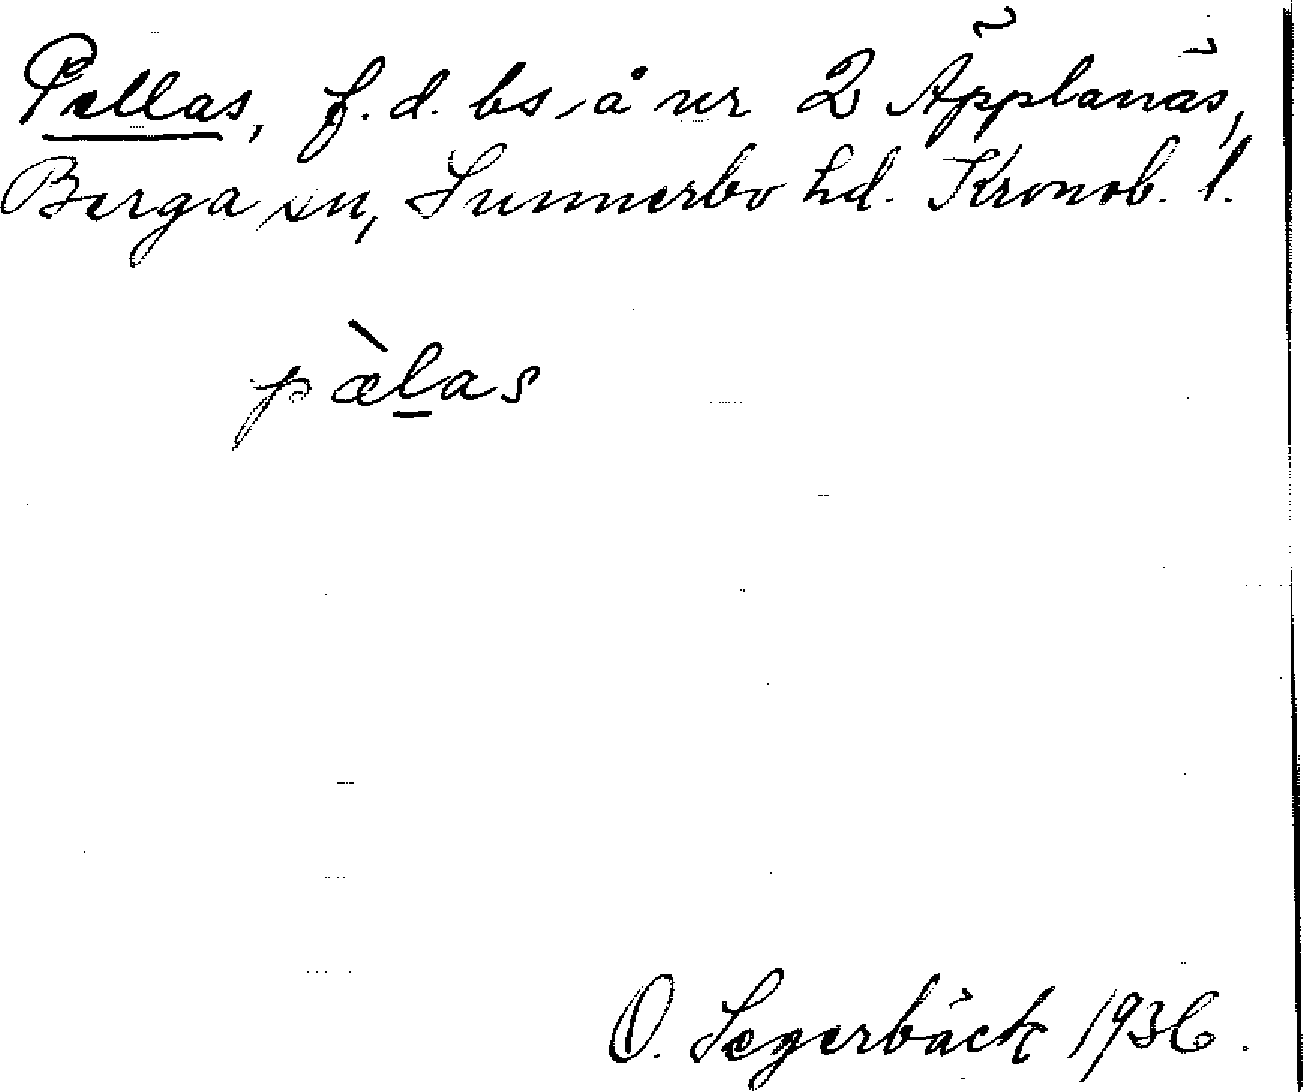 Pellas, f.d. bs å nr 2 Äpplanäs,
Berga sn, Sunnerbo hd. Kronob. l.
pæ̀l̲as
O. Segerbäck 1936.